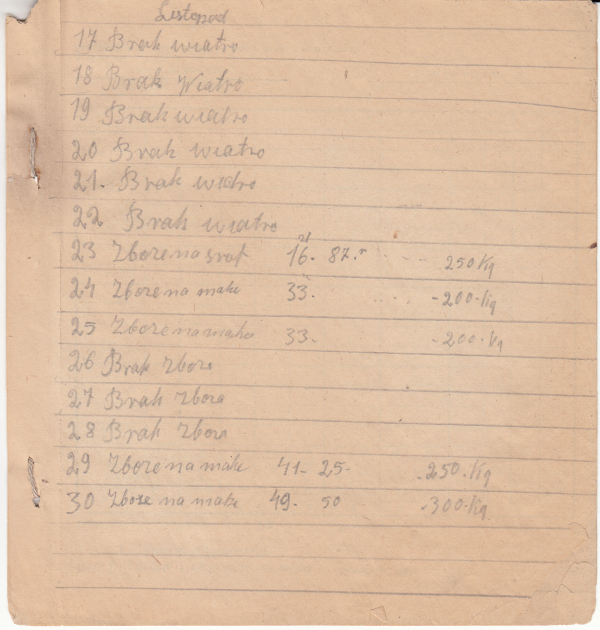 Listopad
17 Brak wiatro
18 Brak Wiatro
19 Brak wiatro
20 Brak wiatro
21. Brak wiatro
22 Brak wiatro
23 Zboze na srot 16. 87. 250 Kg
24 Zboze na make 33. - 200. Kg
25 Zboze na make 33. - 200. Kg
26 Brak Zboza
27 Brak Zboza
28 Brak Zboza
29 Zboze na make 41. 25- 250. Kg
30 Zboze na make 49. 50 300. Kg